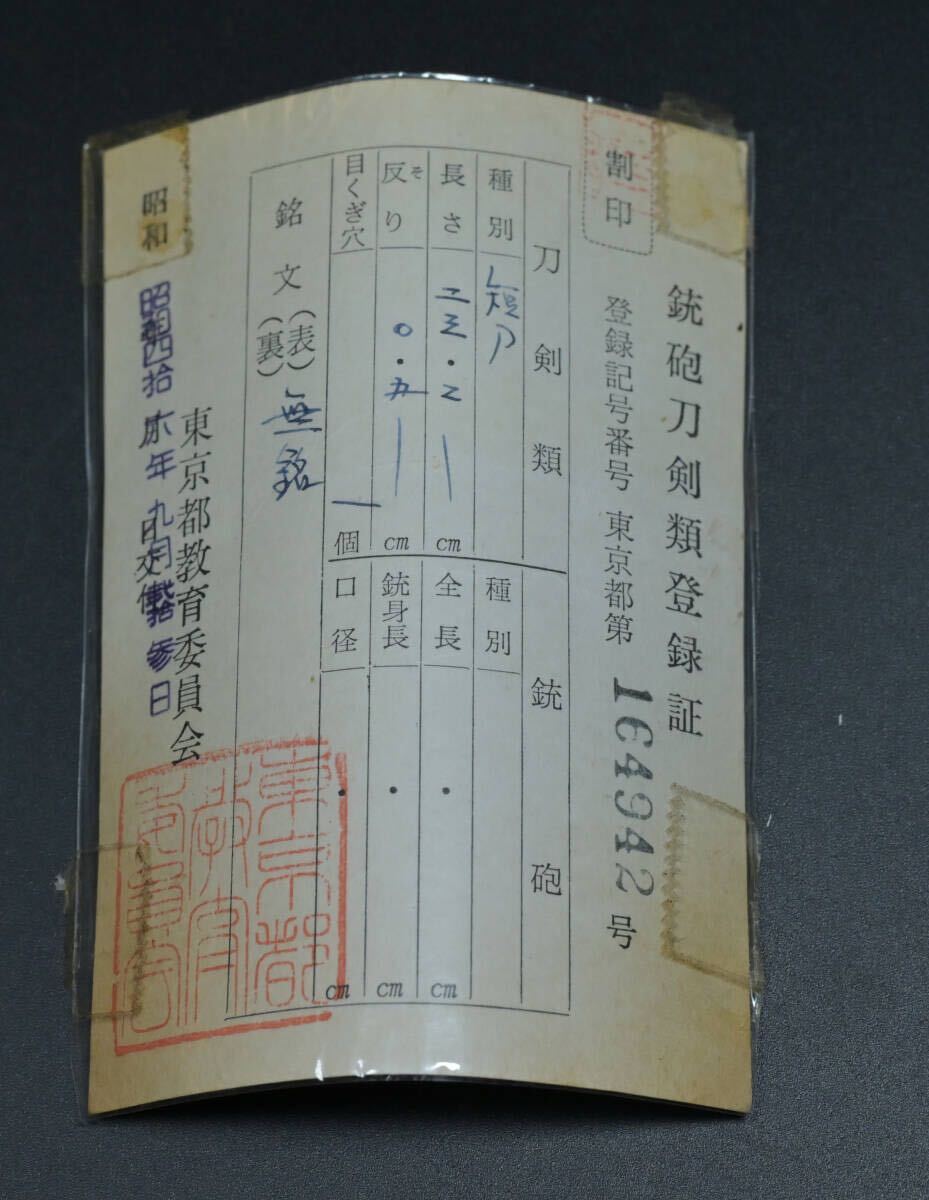 銃砲刀剣類登録証
割印
登録記号番号 東京都第 164942 号
刀剣類
種別 短刀
長さ 二三・二 cm
反り そ 〇・五 cm
目くぎ穴 一 個
銘文 (表) (裏) 無銘
銃砲
種別
全長 ・ cm
銃身長 ・ cm
口径 ・ cm
東京都教育委員会
昭和 昭和四拾 年九月 拾参日
日交付
東京都教育委員会